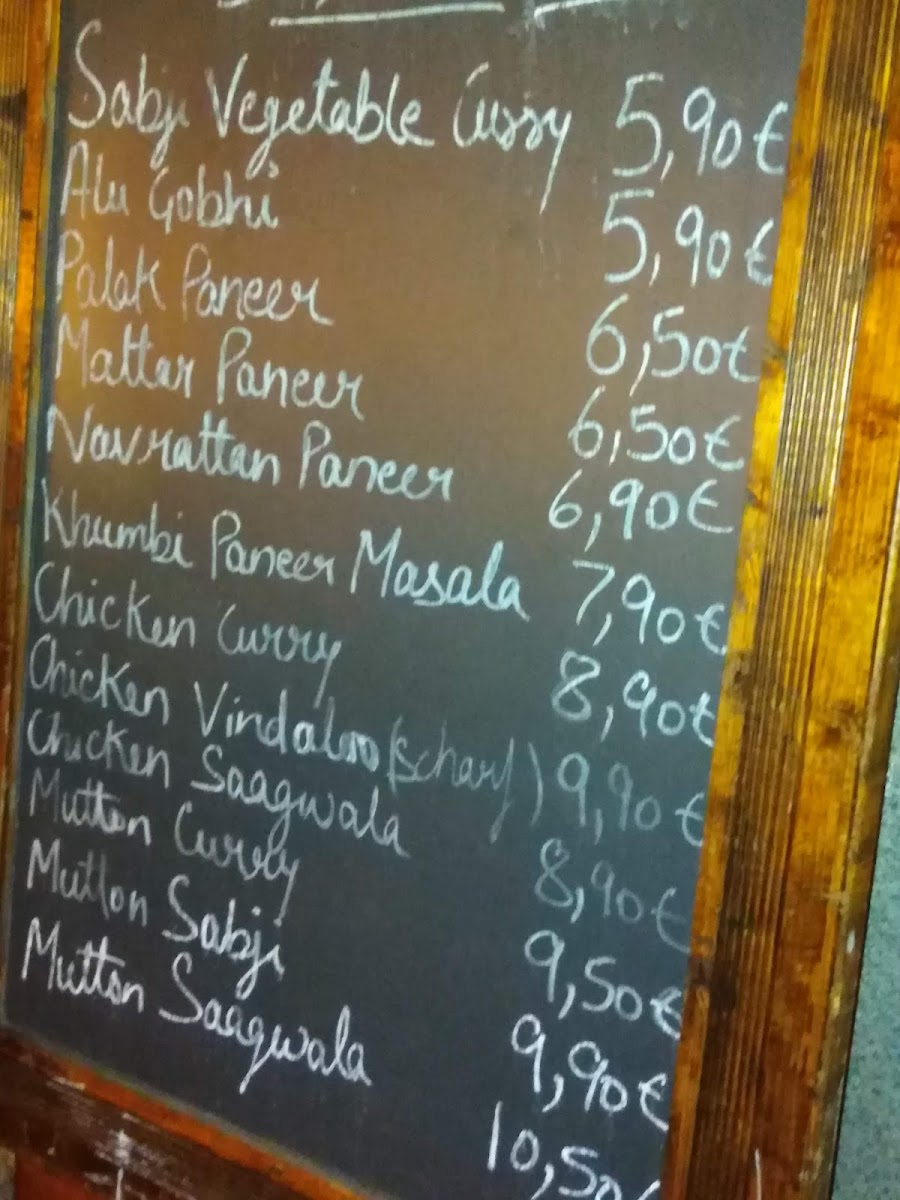 Sabji Vegetable Curry 5,90€
Alu Gobhi 5,90€
Palak Paneer 6,50€
Mattar Paneer 6,50€
Navrattan Paneer 6,90€
Khumbi Paneer Masala 7,90€
Chicken Curry 8,90€
Chicken Vindaloo (scharf) 9,90€
Chicken Saagwala 8,90€
Mutton Curry 9,50€
Mutton Sabji 9,90€
Mutton Saagwala 10,50€